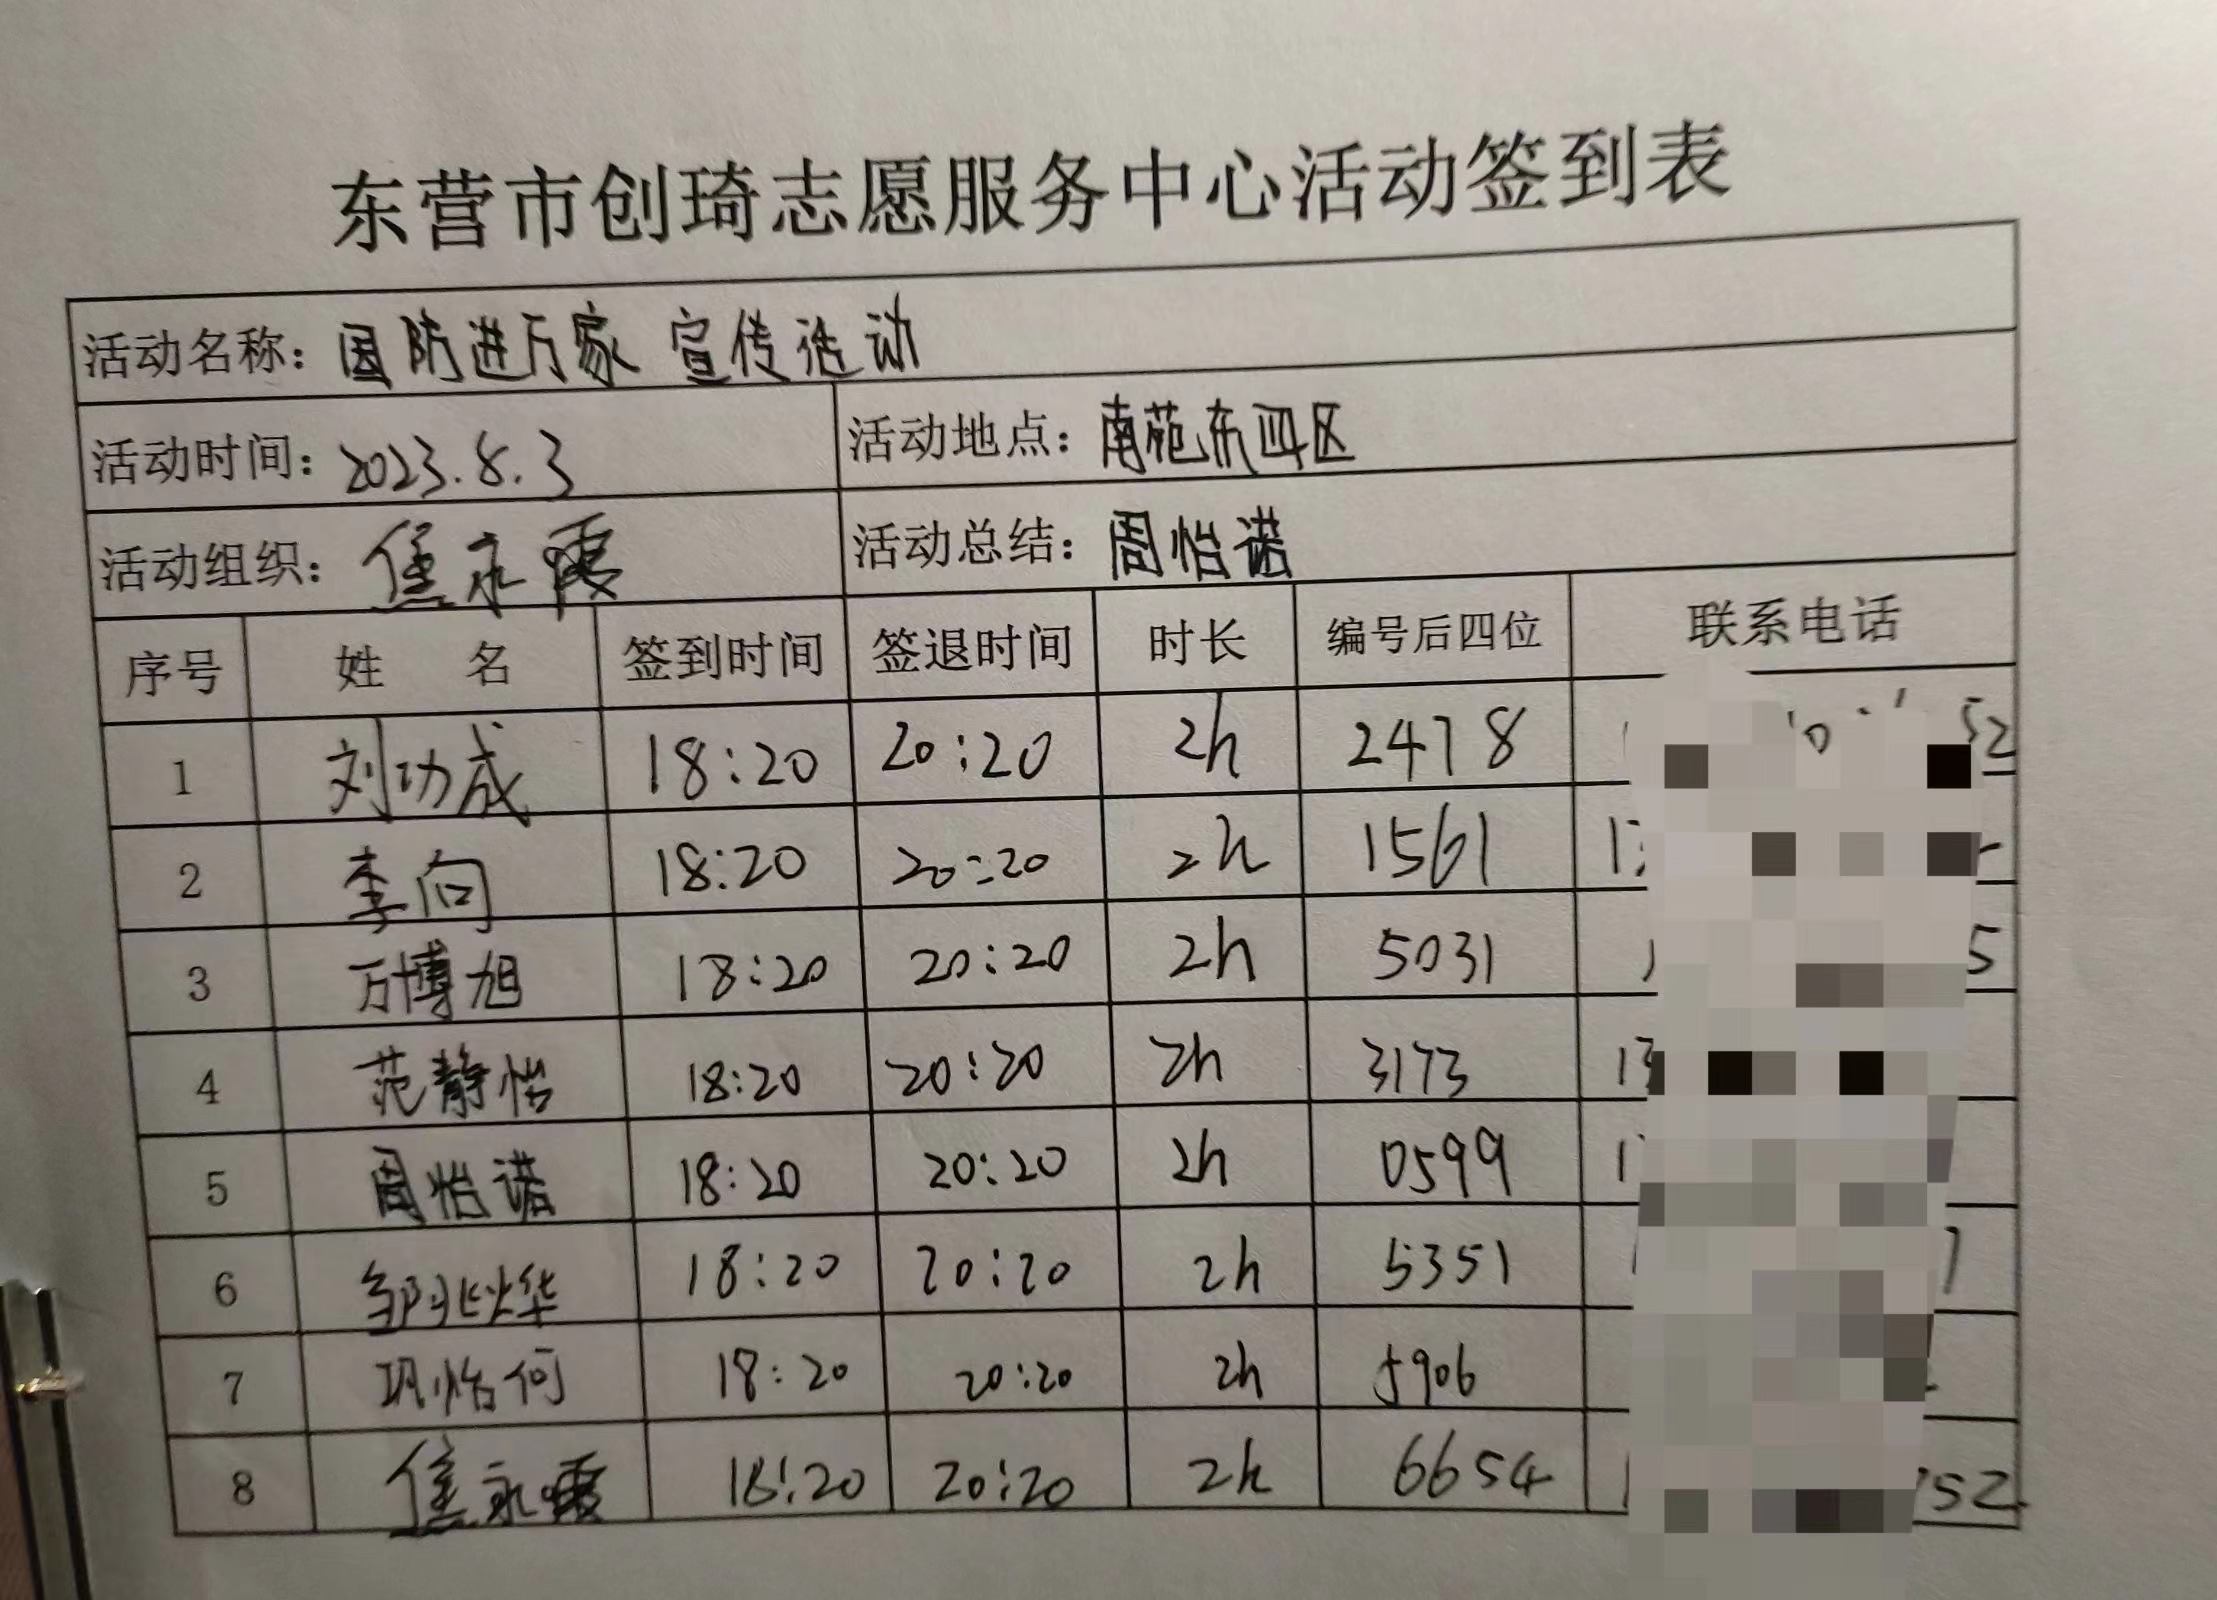 东营市创琦志愿服务中心活动签到表
活动名称：国防进万家 宣传活动
活动时间：2023.8.3 活动地点：南苑东四区
活动组织：焦永霞 活动总结：周怡诺
序号 姓 名 签到时间 签退时间 时长 编号后四位 联系电话
1 刘功成 18:20 20:20 2h 2478
2 李向 18:20 20:20 2h 1561
3 万博旭 18:20 20:20 2h 5031
4 范静怡 18:20 20:20 2h 3173
5 周怡诺 18:20 20:20 2h 0599
6 邹兆烨 18:20 20:20 2h 5351
7 巩怡何 18:20 20:20 2h 5906
8 焦永霞 18:20 20:20 2h 6654